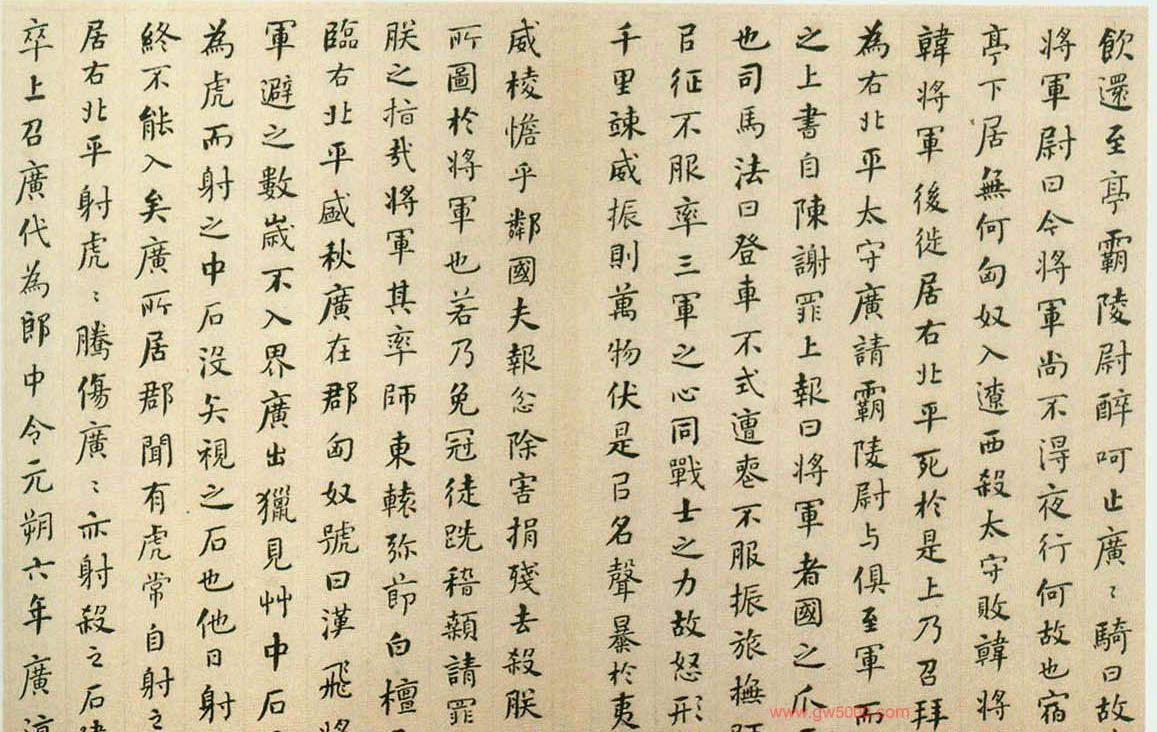 飲還至亭霸陵尉醉呵止廣〻騎曰故
將軍尉曰今將軍尚不淂夜行何故也宿
亭下居無何匈奴入遼西殺太守敗韓將
韓將軍後徙居右北平死於是上乃召拜
為右北平太守廣請霸陵尉与俱至軍而
之上書自陳謝罪上報曰將軍者國之爪
也司馬法曰登車不式遭喪不服振旅撫師
㠯征不服率三軍之心同戰士之力故怒形
千里竦威振則萬物伏是㠯名聲暴於夷
威棱憺乎鄰國夫報忿除害捐殘去殺朕
所圖於將軍也若乃免冠徒跣稽顙請罪
朕之指哉將軍其率師東轅弥節白檀
臨右北平盛秋廣在郡匈奴號曰漢飛將
軍避之數歲不入界廣出獵見艸中石
為虎而射之中石沒矢視之石也他日射
終不能入矣廣所居郡聞有虎常自射之
居右北平射虎〻騰傷廣〻亦射殺之石建
卒上召廣代為郎中令元朔六年廣
www.gw500.com